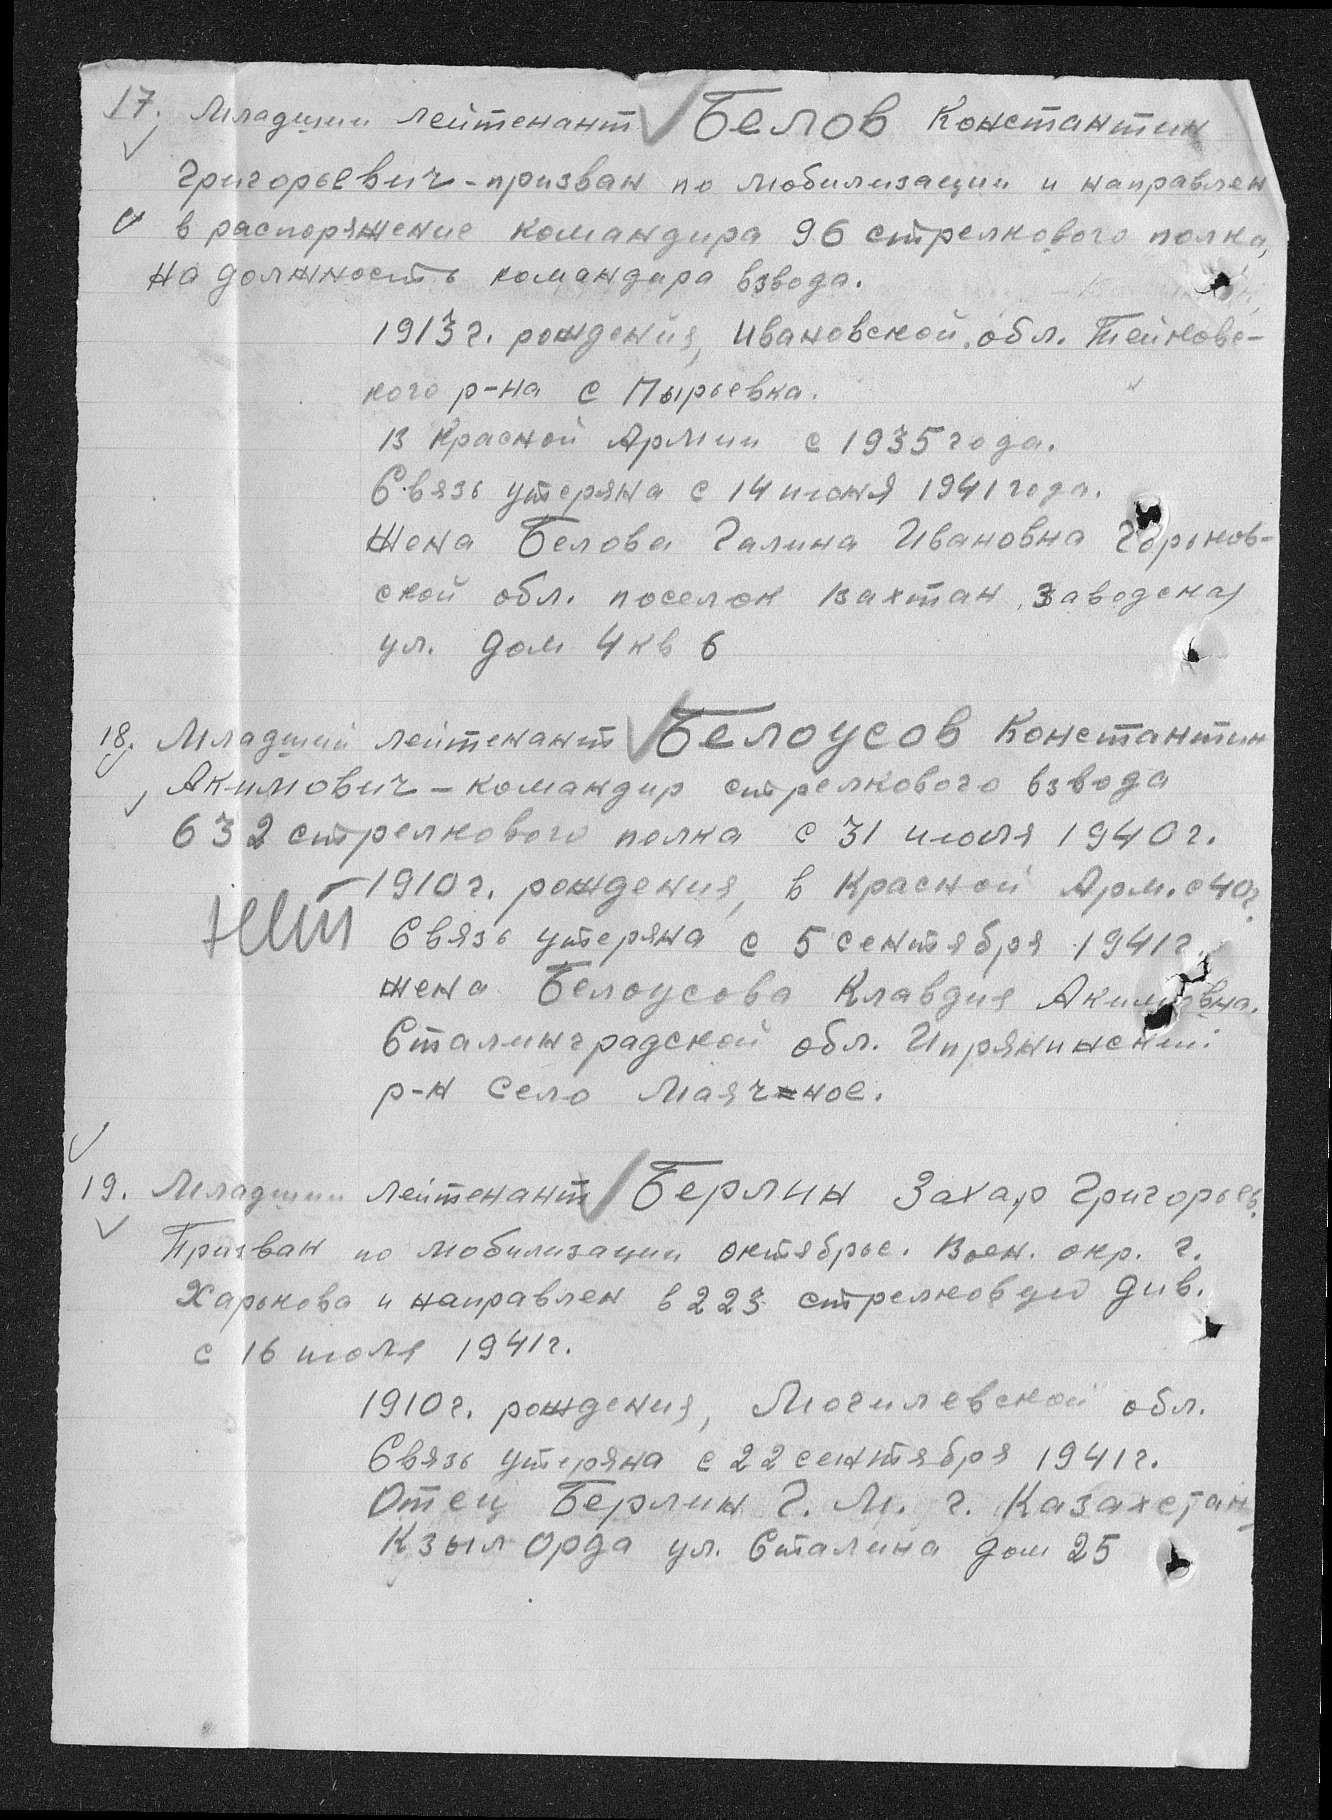 17. Младший лейтенант Белов Константин
Григорьевич - призван по мобилизации и направлен
в распоряжение командира 96 стрелкового полка,
на должность командира взвода.
1913 г. рождения, Ивановской обл. Тейковс-
кого р-на с Пырьевка.
В Красной Армии с 1935 года.
Связь утеряна с 14 июня 1941 года.
Жена Белова Галина Ивановна Горьков-
ской обл. поселок Вахтан, Заводская
ул. дом 4 кв 6
18. Младший лейтенант Белоусов Константин
Акимович - командир стрелкового взвода
632 стрелкового полка с 31 июля 1940 г.
1910 г. рождения, в Красной Арм. с 40 г.
Нет
Связь утеряна с 5 сентября 1941 г.
жена Белоусова Клавдия Акимовна.
Сталинградской обл.
р-н село Маячное.
19. Младший лейтенант Берлин Захар Григорьев.
Призван по мобилизации октябрьс. Воен. окр. г.
Харькова и направлен в 223 стрелковую див.
с 16 июля 1941 г.
1910 г. рождения, Могилевской обл.
Связь утеряна с 22 сентября 1941 г.
Отец Берлин Г. М. г. Казахстан
Кзыл Орда ул. Сталина дом 25